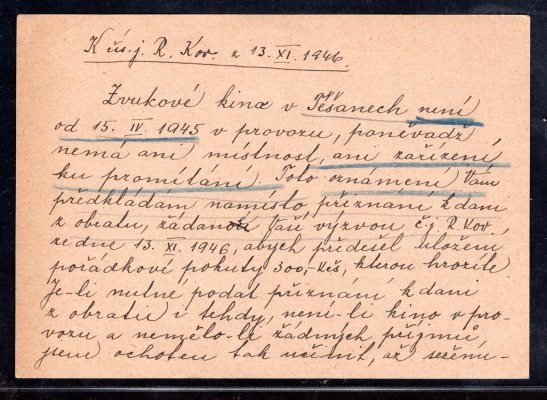 K čís. j. R. Kov. z 13. XI. 1946.
Zvukové kino v Těšanech není
od 15. IV. 1945 v provozu, poněvadž
nemá ani místnost, ani zařízení
ku promítání. Toto oznámení Vám
předkládám namísto přiznání k dani
z obratu, žádané Vaší výzvou č. j. R. Kov.
ze dne 13. XI. 1946, abych předešel uložení
pořádkové pokuty 300,- Kčs, kterou hrozíte.
Je-li nutné podat přiznání k dani
z obratu i tehdy, není-li kino v pro-
vozu a nemělo-li žádných příjmů,
jsem ochoten tak učinit, až seženu-